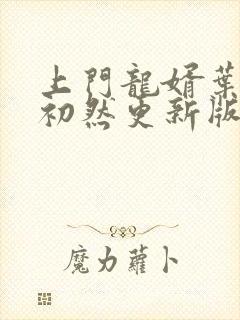 上門龍婿葉
初然更新版
魔力蘿卜